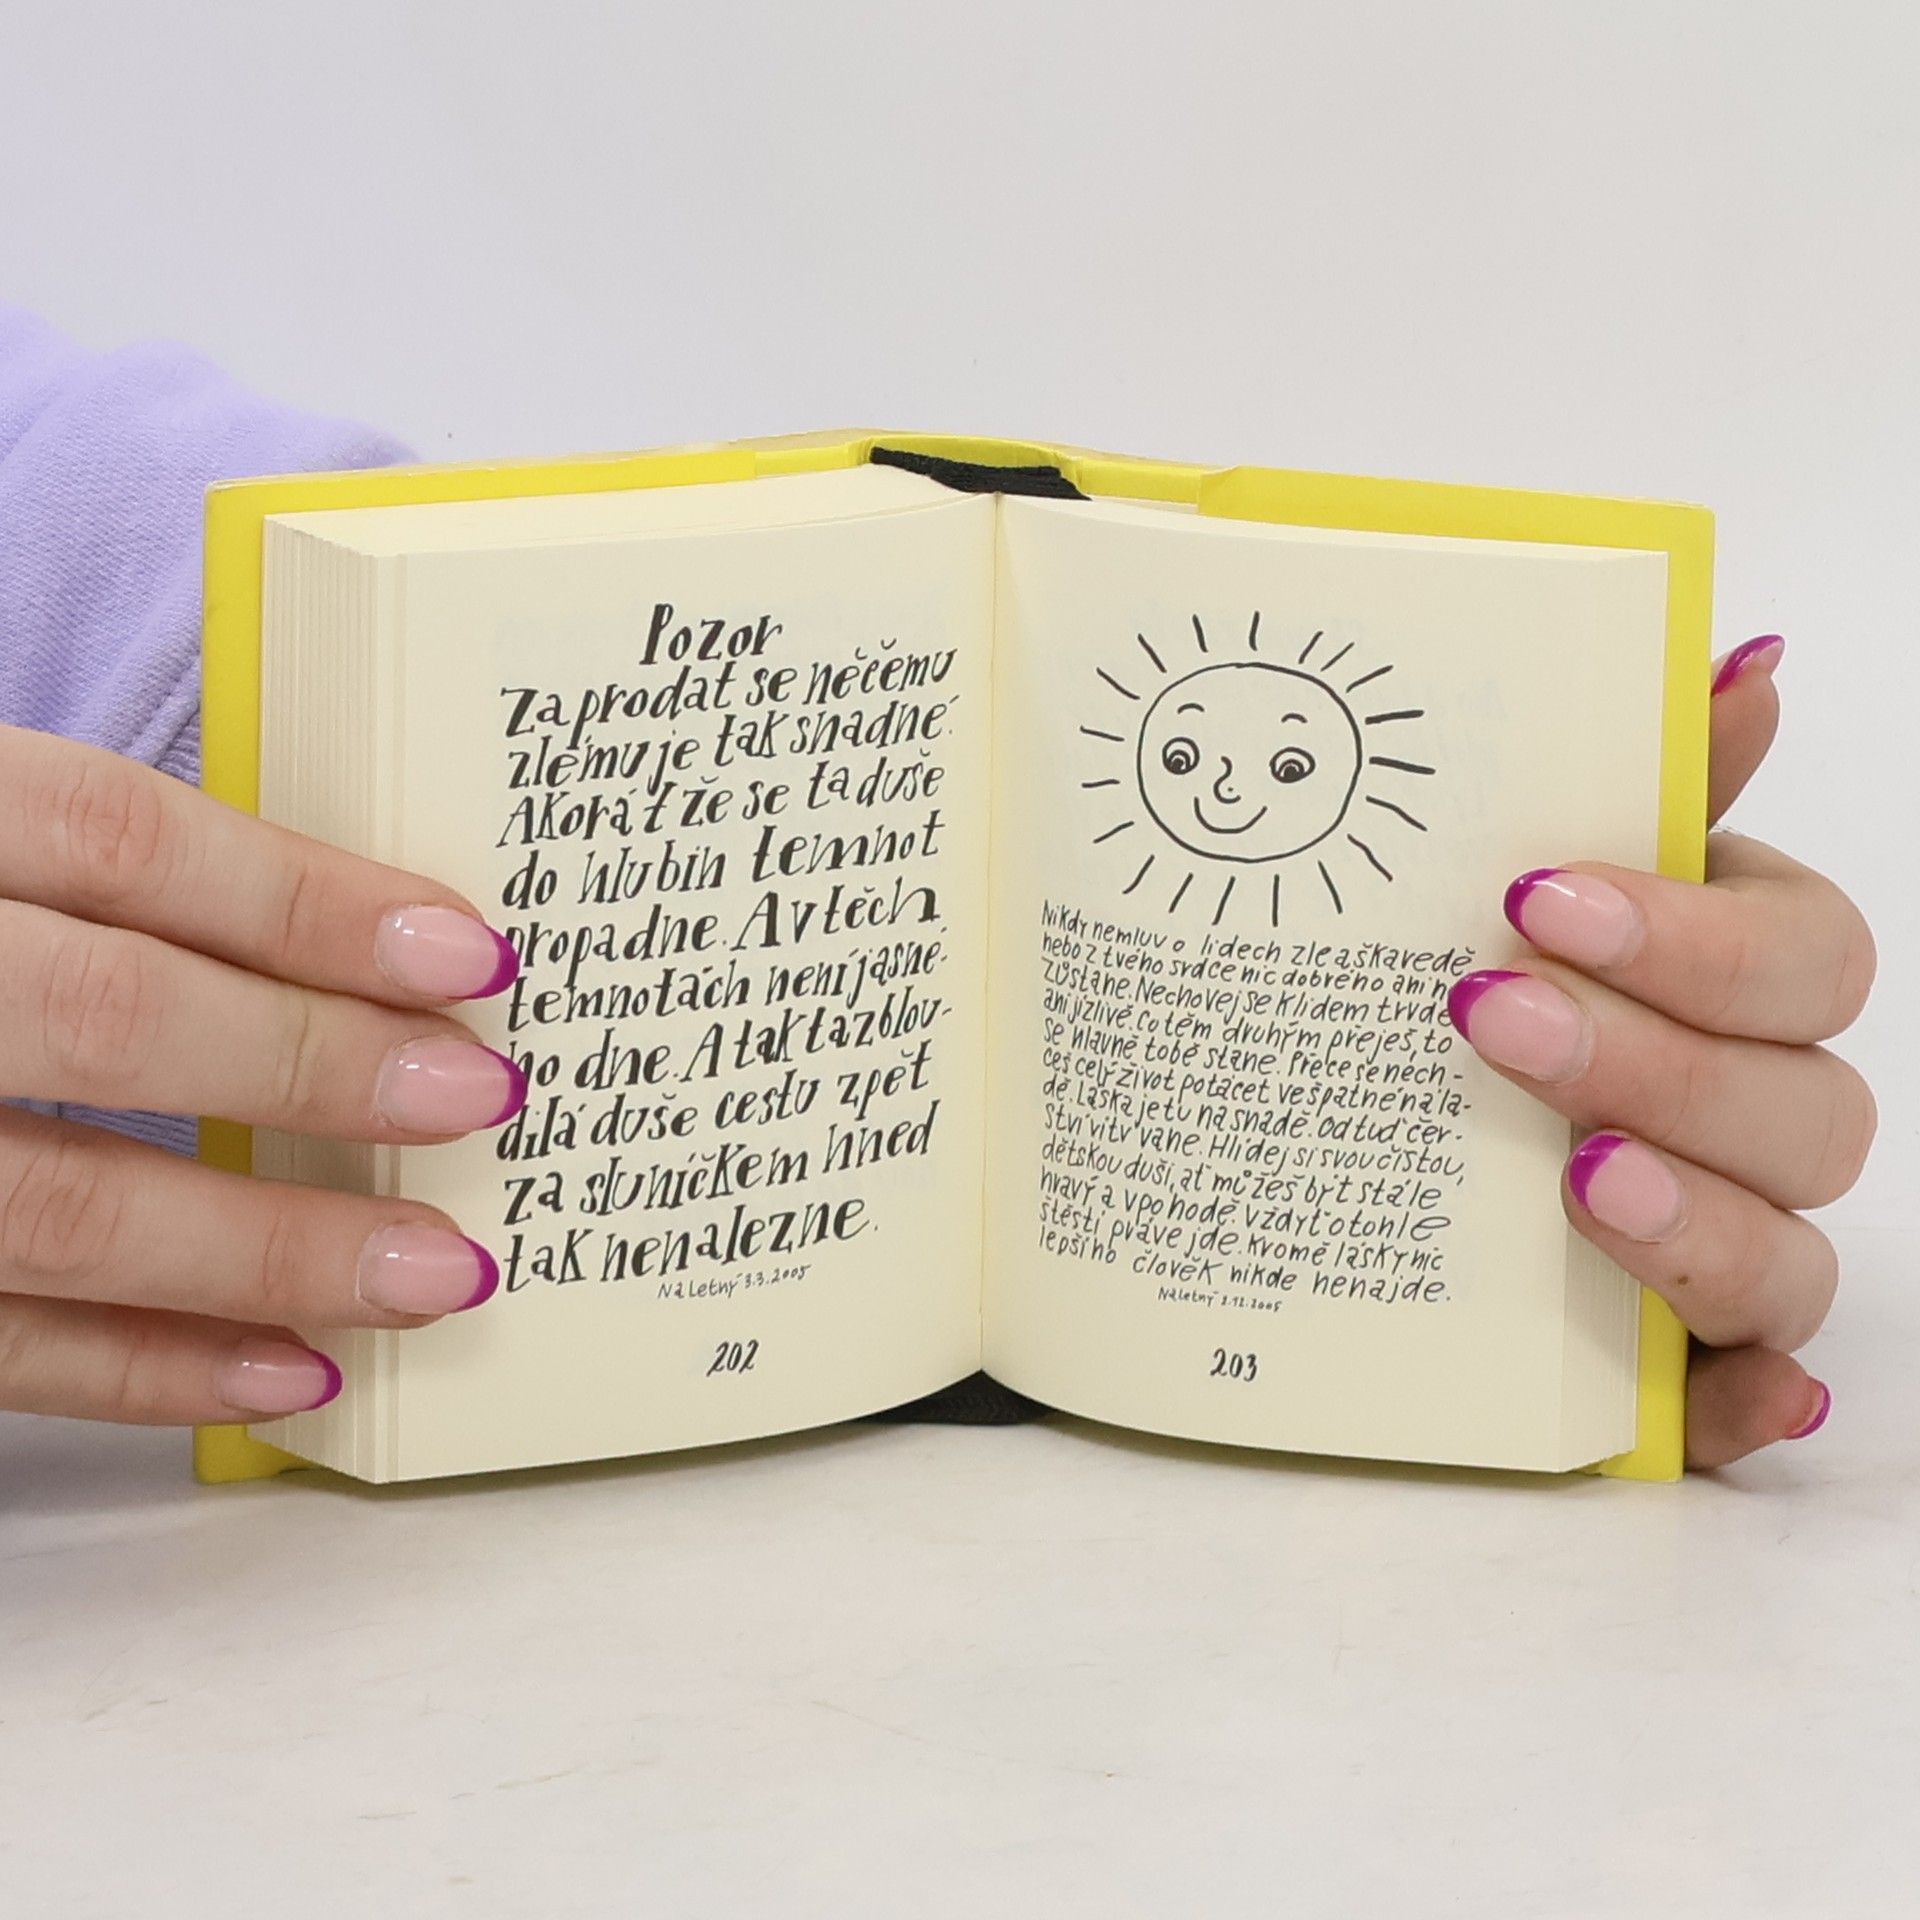 Pozor
Zaprodat se něčemu
zlému je tak snadné.
Akorát že se ta duše
do hlubin temnot
propadne. A v těch
temnotách není jasné-
ho dne. A tak ta zblou-
dilá duše cestu zpět
za sluníčkem hned
tak nenalezne.
Na Letný 3.3.2005
202
Nikdy nemluv o lidech zle a škaredě
nebo z tvého srdce nic dobrého ani
zůstane. Nechovej se k lidem tvrdě
ani jízlivě. Co těm druhým přeješ, to
se hlavně tobě stane. Přece se nech-
ceš celý život potácet ve špatné nála-
dě. Láska je tu nasnadě. Odtud čer-
ství vítr vane. Hlídej si svou čistou,
dětskou duši, ať můžeš být stále
hravý a v pohodě. Vždyť o tohle
štěstí právě jde. Kromě lásky nic
lepšího člověk nikde nenajde.
Na Letný 2.12.2005
203